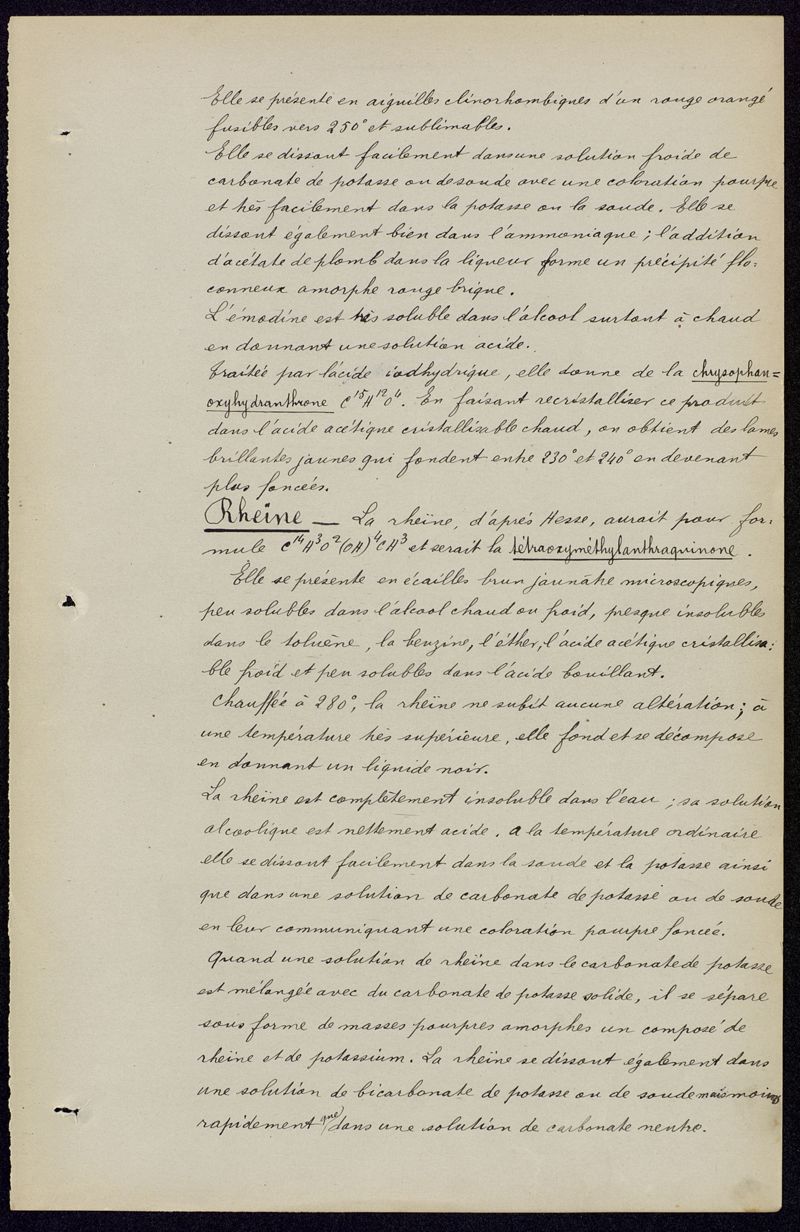 Elle se présente en aiguilles clinorhombiques d'un rouge orangé
fusibles vers 250° et sublimables.
Elle se dissout facilement dans une solution froide de
carbonate de potasse ou de soude avec une coloration pourpre
et très facilement dans la potasse ou la soude. Elle se
dissout également bien dans l'ammoniaque ; l'addition
d'acétate de plomb dans la liqueur forme un précipité flo-
conneux amorphe rouge brique.
L'émodine est très soluble dans l'alcool surtout à chaud
en donnant une solution acide.
Traitée par l'acide iodhydrique, elle donne de la chrysophan=
oxyhydranthrone C¹⁵H¹²O⁴. En faisant recristalliser ce produit
dans l'acide acétique cristallisable chaud, on obtient des lames
brillantes jaunes qui fondent entre 230° et 240° en devenant
plus foncées.
Rhéïne — La rhéïne, d'après Hesse, aurait pour for-
mule C¹⁴H³O²(OH)⁴CH³ et serait la tétraoxyméthylanthraquinone.
Elle se présente en écailles brun jaunâtre microscopiques,
peu solubles dans l'alcool chaud ou froid, presque insolubles
dans le toluène, la benzine, l'éther, l'acide acétique cristallisa-
ble froid et peu solubles dans l'acide bouillant.
Chauffée à 280°, la rhéïne ne subit aucune altération ; à
une température très supérieure, elle fond et se décompose
en donnant un liquide noir.
La rhéïne est complètement insoluble dans l'eau ; sa solution
alcoolique est nettement acide. A la température ordinaire
elle se dissout facilement dans la soude et la potasse ainsi
que dans une solution de carbonate de potasse ou de soude
en leur communiquant une coloration pourpre foncée.
Quand une solution de rhéïne dans le carbonate de potasse
est mélangée avec du carbonate de potasse solide, il se sépare
sous forme de masses pourpres amorphes un composé de
rhéïne et de potassium. La rhéïne se dissout également dans
une solution de bicarbonate de potasse ou de soude mais moins
rapidement que dans une solution de carbonate neutre.